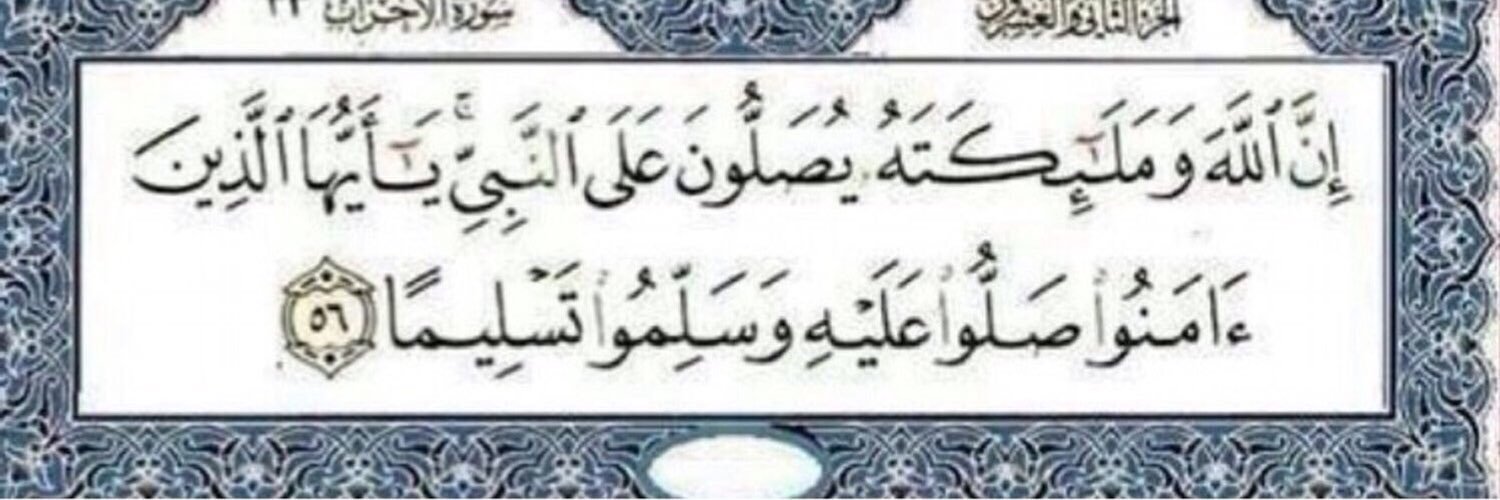 الجزء الثاني والعشرون
سورة الأحزاب ٣٣
إِنَّ ٱللَّهَ وَمَلَٰٓئِكَتَهُۥ يُصَلُّونَ عَلَى ٱلنَّبِيِّۚ يَٰٓأَيُّهَا ٱلَّذِينَ
ءَامَنُوا۟ صَلُّوا۟ عَلَيْهِ وَسَلِّمُوا۟ تَسْلِيمًا ٥٦